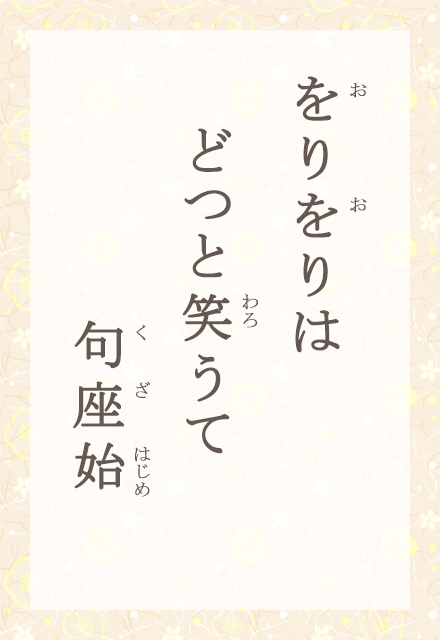 をりをりは
どつと笑うて
句座始
お
お
わろ
く
ざ
はじめ